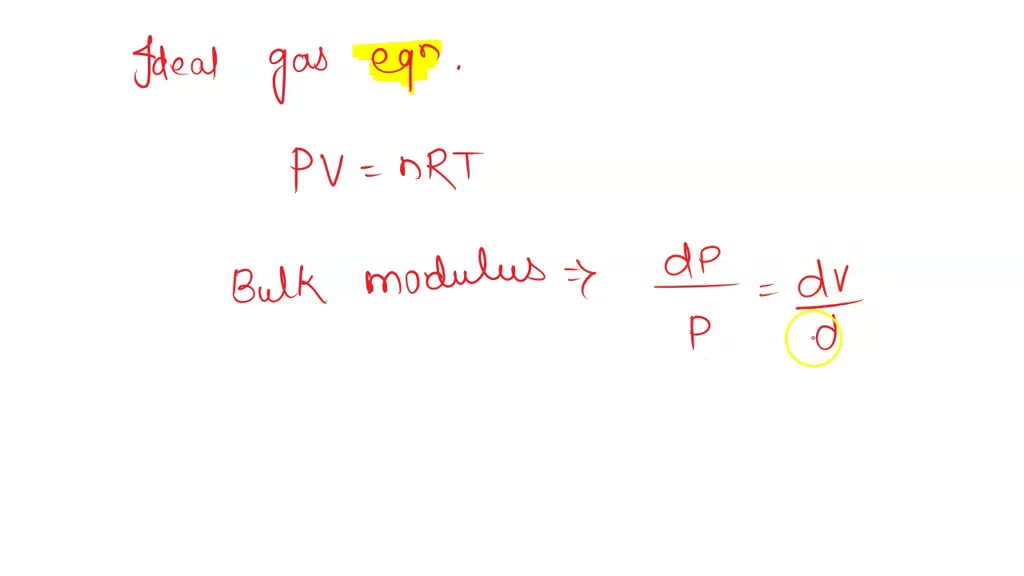 Ideal gas eqn.
PV = nRT
Bulk modulus ⇒ dP/P = dV/d